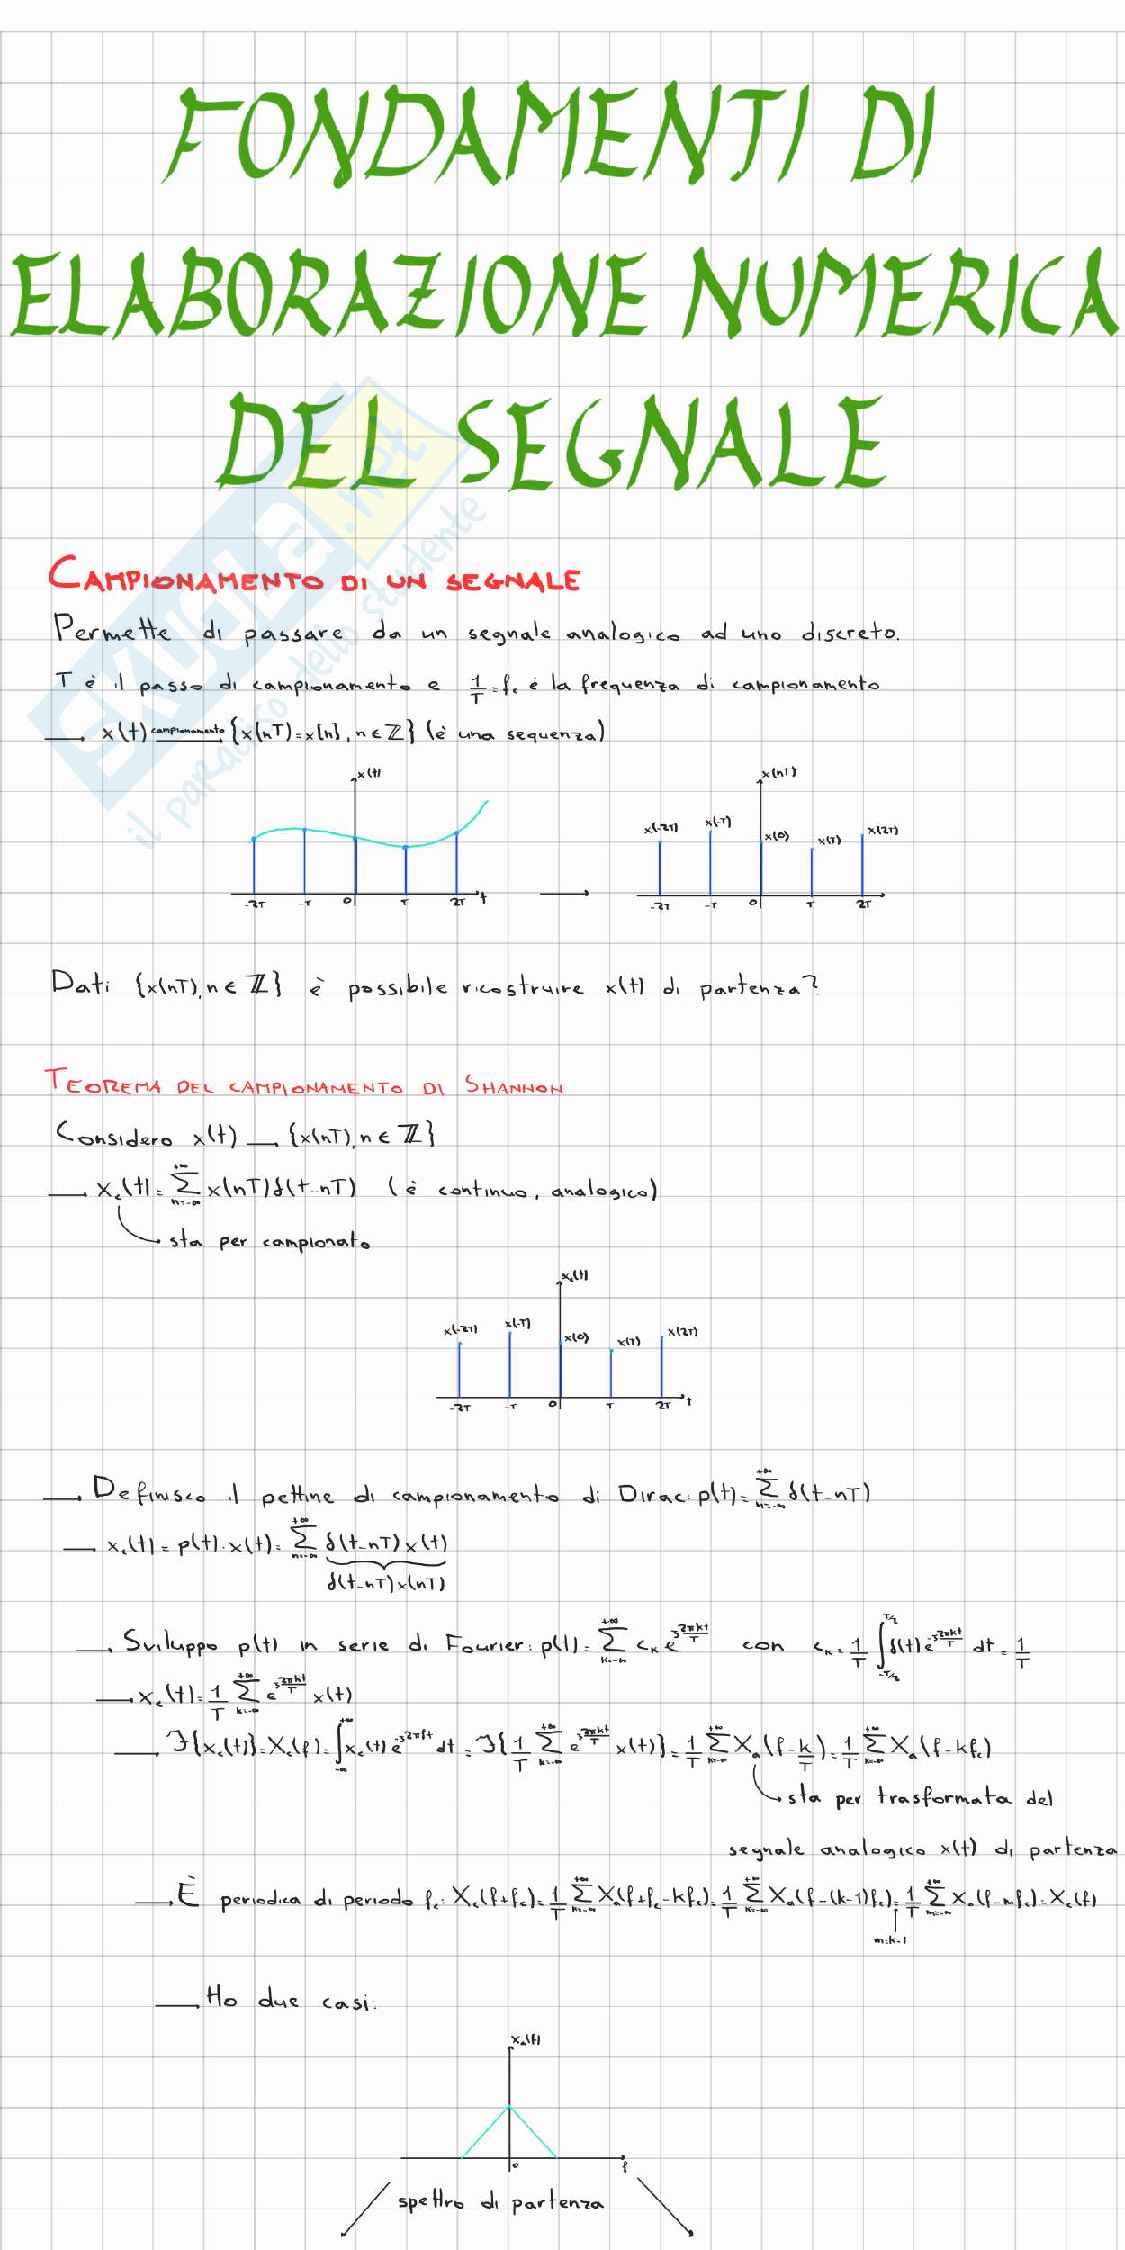 FONDAMENTI DI
ELABORAZIONE NUMERICA
DEL SEGNALE
SKUOLA.net
il paradiso dello studente
CAMPIONAMENTO DI UN SEGNALE
Permette di passare da un segnale analogico ad uno discreto.
T è il passo di campionamento e 1/T = fc è la frequenza di campionamento
→ x(t) —campionamento→ {x(nT) = x[n], n ∈ ℤ} (è una sequenza)
x(t) x(nT)
x(-2T) x(-T) x(0) x(T) x(2T)
-2T -T 0 T 2T t → -2T -T 0 T 2T
Dati {x(nT), n ∈ ℤ} è possibile ricostruire x(t) di partenza?
TEOREMA DEL CAMPIONAMENTO DI SHANNON
Considero x(t) → {x(nT), n ∈ ℤ}
→ xc(t) = Σ_{n=-∞}^{+∞} x(nT) δ(t-nT) (è continuo, analogico)
sta per campionato
xc(t)
x(-2T) x(-T) x(0) x(T) x(2T)
-2T -T 0 T 2T t
→ Definisco il pettine di campionamento di Dirac: p(t) = Σ_{n=-∞}^{+∞} δ(t-nT)
→ xc(t) = p(t)·x(t) = Σ_{n=-∞}^{+∞} δ(t-nT) x(t)
δ(t-nT) x(nT)
→ Sviluppo p(t) in serie di Fourier: p(t) = Σ_{k=-∞}^{+∞} ck e^{j2πkt/T} con ck = 1/T ∫_{-T/2}^{T/2} δ(t) e^{-j2πkt/T} dt = 1/T
→ xc(t) = 1/T Σ_{k=-∞}^{+∞} e^{j2πkt/T} x(t)
→ ℱ{xc(t)} = Xc(f) = ∫_{-∞}^{+∞} xc(t) e^{-j2πft} dt = ℱ{1/T Σ_{k=-∞}^{+∞} e^{j2πkt/T} x(t)} = 1/T Σ_{k=-∞}^{+∞} Xa(f - k/T) = 1/T Σ_{k=-∞}^{+∞} Xa(f - kfc)
sta per trasformata del
segnale analogico x(t) di partenza
→ È periodica di periodo fc: Xc(f+fc) = 1/T Σ_{k=-∞}^{+∞} Xa(f+fc-kfc) = 1/T Σ_{k=-∞}^{+∞} Xa(f-(k-1)fc) = 1/T Σ_{m=-∞}^{+∞} Xa(f-mfc) = Xc(f)
m=k-1
→ Ho due casi:
Xa(f)
0 f
spettro di partenza